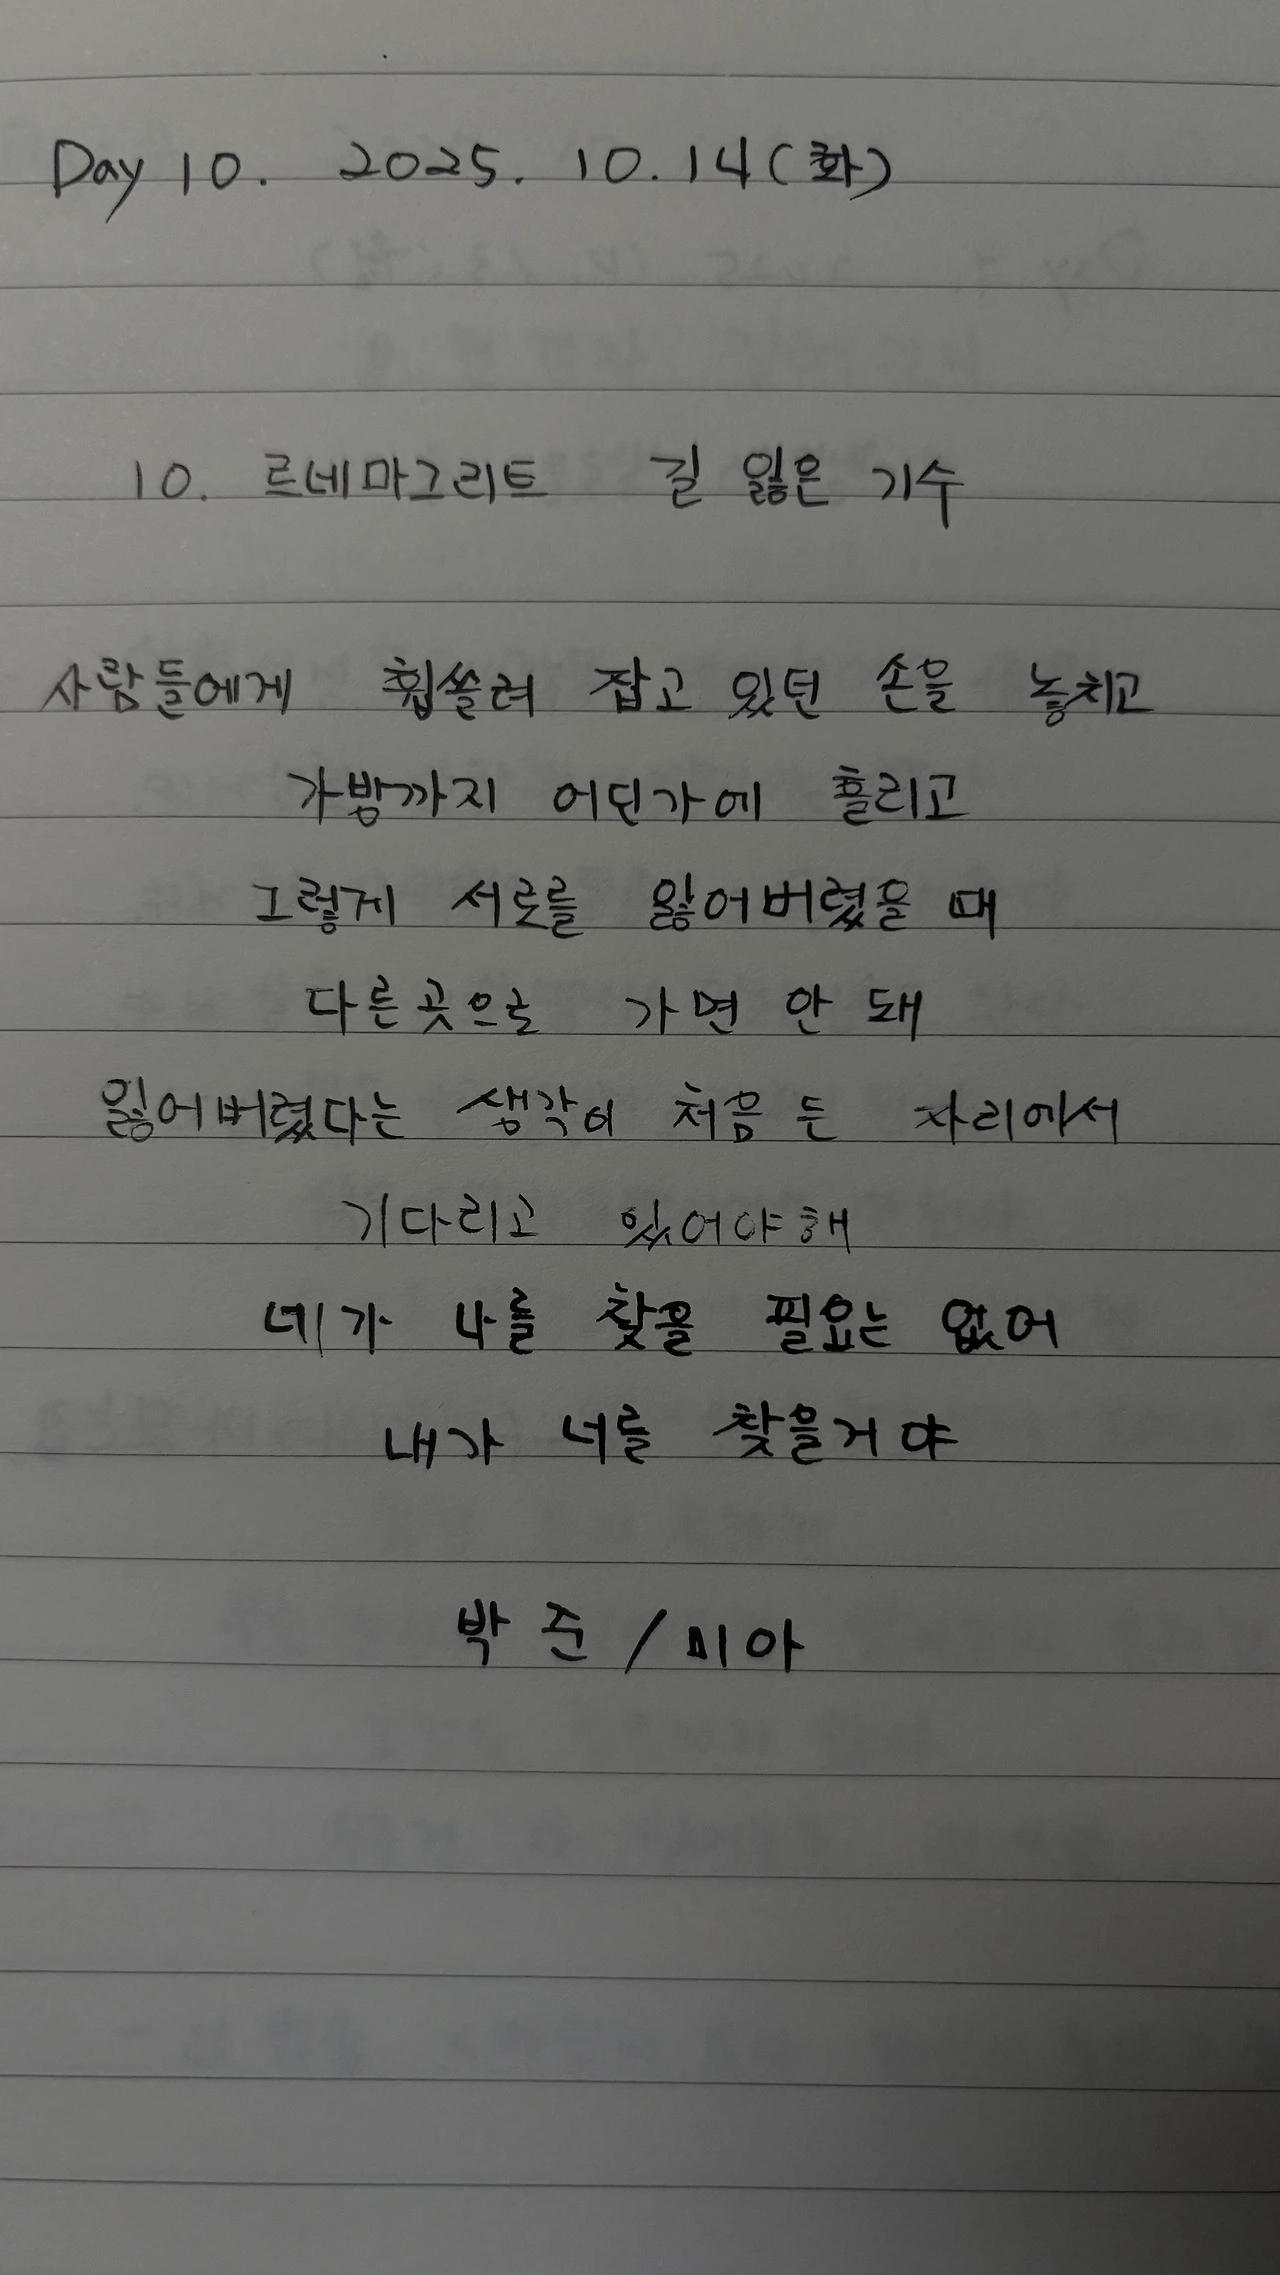 Day 10. 2025. 10.14(화)
10. 르네마그리트 길 잃은 기수
사람들에게 휩쓸려 잡고 있던 손을 놓치고
가방까지 어딘가에 흘리고
그렇게 서로를 잃어버렸을 때
다른곳으로 가면 안 돼
잃어버렸다는 생각이 처음 든 자리에서
기다리고 있어야해
네가 나를 찾을 필요는 없어
내가 너를 찾을거야
박 준 / 미아